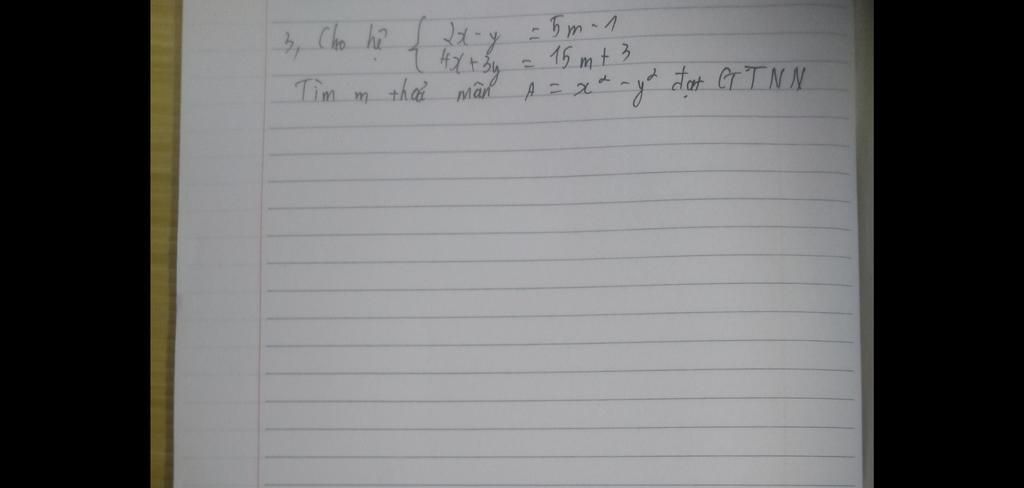 3, Cho hệ { 2x - y = 5m - 1
4x + 3y = 15m + 3
Tìm m thoả mãn A = x² - y² đạt GTTNN